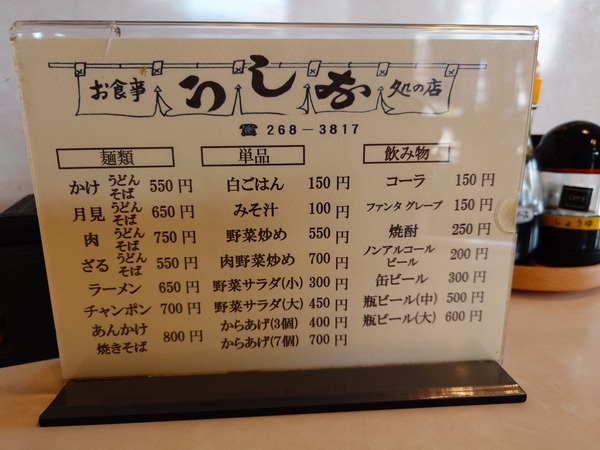 お食事 うしお 処の店
☎ 268－3817
麺類
かけ うどん そば 550円
月見 うどん そば 650円
肉 うどん そば 750円
ざる うどん そば 550円
ラーメン 650円
チャンポン 700円
あんかけ
焼きそば 800円
単品
白ごはん 150円
みそ汁 100円
野菜炒め 550円
肉野菜炒め 700円
野菜サラダ(小) 300円
野菜サラダ(大) 450円
からあげ(3個) 400円
からあげ(7個) 700円
飲み物
コーラ 150円
ファンタ グレープ 150円
焼酎 250円
ノンアルコール
ビール 200円
缶ビール 300円
瓶ビール(中) 500円
瓶ビール(大) 600円
しょうゆ